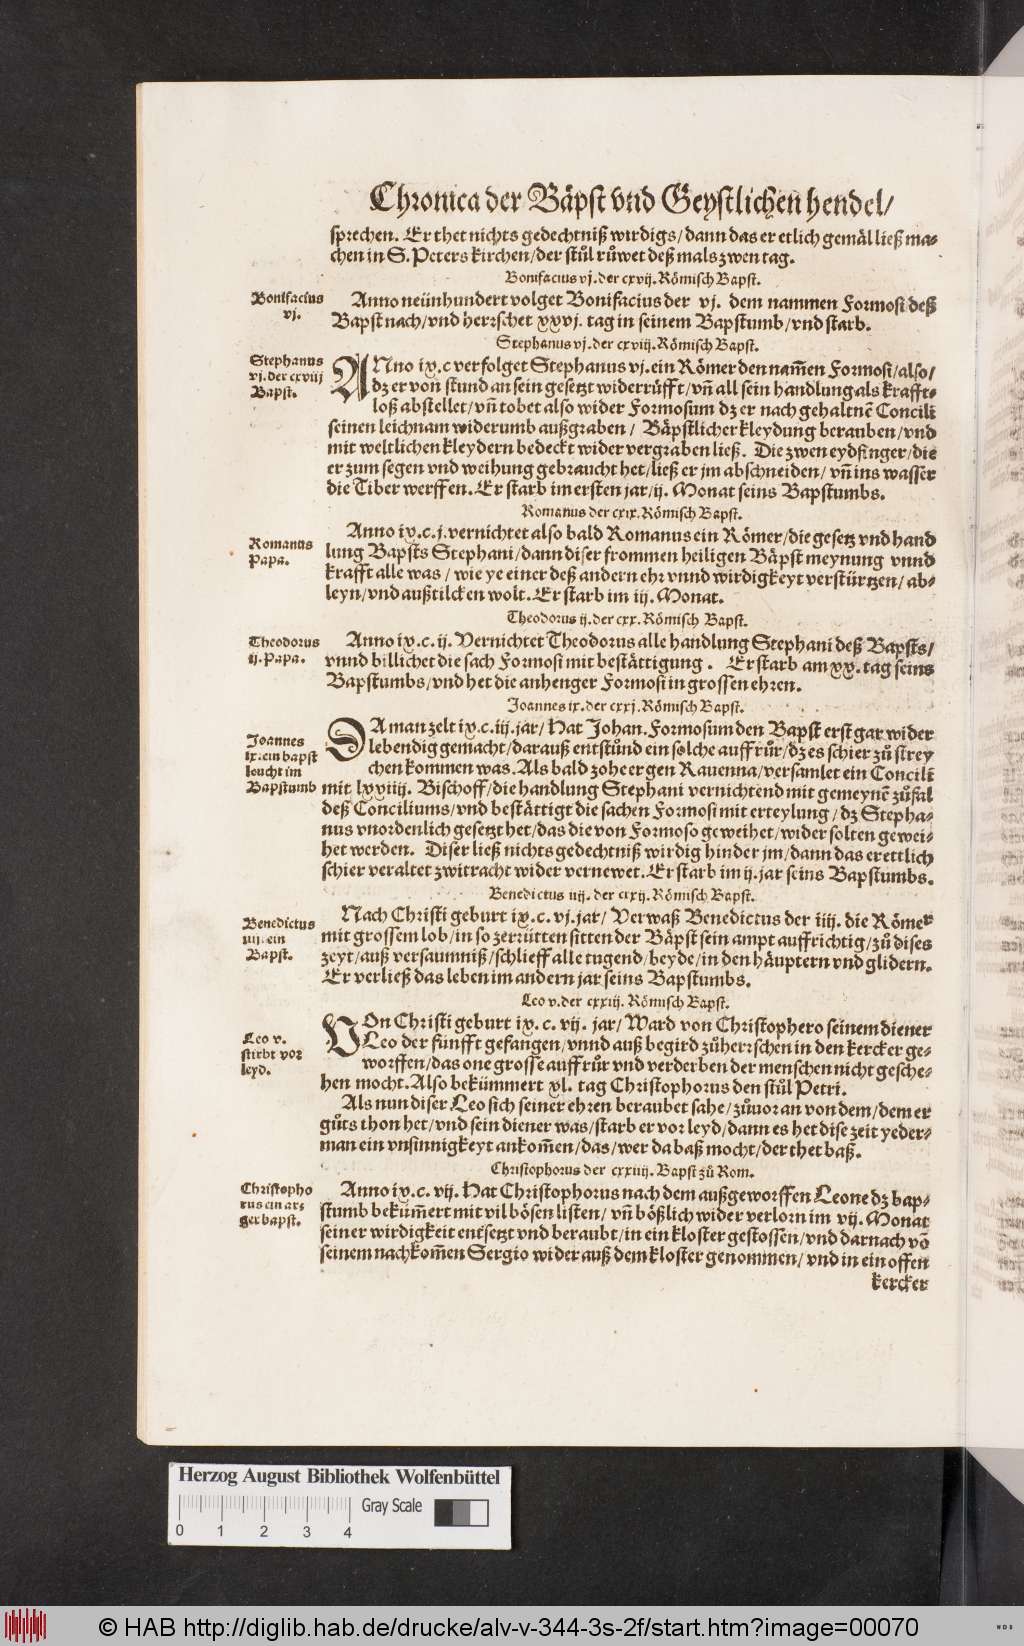 Chronica der Bäpst vnd Geystlichen hendel/
sprechen. Er thet nichts gedechtniß wirdigs/dann das er etlich gemäl ließ ma-
chen in S. Peters kirchen/der stůl růwet deß mals zwen tag.
Bonifacius vj. der cxvij. Römisch Bapst.
Bonifacius
vj.
Anno neünhundert volget Bonifacius der vj. dem nammen Formosi deß
Bapst nach/vnd herrschet xxvj. tag in seinem Bapstumb/vnd starb.
Stephanus vj. der cxviij. Römisch Bapst.
Stephanus
vj. der cxviij
Bapst.
ANno ix.c verfolget Stephanus vj. ein Römer den nam̃en Formosi/also/
dz er von stund an sein gesetzt widerrůfft/vñ all sein handlung als krafft-
loß abstellet/vñ tobet also wider Formosum dz er nach gehaltnē Concili
seinen leichnam widerumb außgraben/ Bäpstlicher kleydung berauben/vnd
mit weltlichen kleydern bedeckt wider vergraben ließ. Die zwen eydfinger/die
er zum segen vnd weihung gebraucht het/ließ er jm abschneiden/vñ ins wasser
die Tiber werffen. Er starb im ersten jar/ij. Monat seins Bapstumbs.
Romanus der cxix. Römisch Bapst.
Romanus
Papa.
Anno ix.c.j. vernichtet also bald Romanus ein Römer/die gesetz vnd hand
lung Bapsts Stephani/dann diser frommen heiligen Bäpst meynung vnnd
krafft alle was/wie ye einer deß andern ehr vnnd wirdigkeyt verstürtzen/ab-
leyn/vnd außtilcken wolt. Er starb im iij. Monat.
Theodorus ij. der cxx. Römisch Bapst.
Theodorus
ij. Papa.
Anno ix.c.ij. Vernichtet Theodorus alle handlung Stephani deß Bapsts/
vnnd billichet die sach Formosi mit bestättigung. Er starb am xx. tag seins
Bapstumbs/vnd het die anhenger Formosi in grossen ehren.
Joannes ix. der cxxj. Römisch Bapst.
Joannes
ix. ein bapst
leucht im
Bapstumb
DA man zelt ix.c.iij. jar/Hat Johan. Formosum den Bapst erst gar wider
lebendig gemacht/darauß entstůnd ein solche auffrůr/dz es schier zů strey
chen kommen was. Als bald zohe er gen Rauenna/versamlet ein Concili
mit lxxiiij. Bischoff/die handlung Stephani vernichtend mit gemeynē zůfal
deß Conciliums/vnd bestättigt die sachen Formosi mit erteylung/dz Stepha-
nus vnordenlich gesetzt het/das die von Formoso geweihet/wider solten gewei-
het werden. Diser ließ nichts gedechtniß wirdig hinder jm/dann das er ettlich
schier veraltet zwitracht wider vernewet. Er starb im ij. jar seins Bapstumbs.
Benedictus iiij. der cxxij. Römisch Bapst.
Benedictus
iiij. ein
Bapst.
Nach Christi geburt ix.c.vj. jar/Verwaß Benedictus der iiij. die Römer
mit grossem lob/in so zerrütten sitten der Bäpst sein ampt auffrichtig/zů dises
zeyt/auß versaumniß/schlieff alle tugend/beyde/in den häuptern vnd glidern.
Er verließ das leben im andern jar seins Bapstumbs.
Leo v. der cxxiij. Römisch Bapst.
Leo v.
stirbt vor
leyd.
VOn Christi geburt ix.c.vij. jar/Ward von Christophero seinem diener
Leo der fünfft gefangen/vnnd auß begird zůherrschen in den kercker ge-
worffen/das one grosse auffrůr vnd verderben der menschen nicht gesche-
hen mocht. Also bekümmert xl. tag Christophorus den stůl Petri.
Als nun diser Leo sich seiner ehren beraubet sahe/zůuor an von dem/dem er
gůts thon het/vnd sein diener was/starb er vor leyd/dann es het dise zeyt yeder-
man ein vnsinnigkeyt ankom̃en/das/wer da baß mocht/der thet baß.
Christophorus der cxxiiij. Bapst zů Rom.
Christopho
rus ein ar-
ger bapst.
Anno ix.c.vij. Hat Christophorus nach dem außgeworffen Leone dz bap-
stumb beküm̃ert mit vil bösen listen/vñ bößlich wider verlorn im vij. Monat
seiner wirdigkeit entsetzt vnd beraubt/in ein kloster gestossen/vnd darnach võ
seinem nachkom̃en Sergio wider auß dem kloster genommen/vnd in ein offen
kercker
Herzog August Bibliothek Wolfenbüttel
Gray Scale
0 1 2 3 4
© HAB http://diglib.hab.de/drucke/alv-v-344-3s-2f/start.htm?image=00070